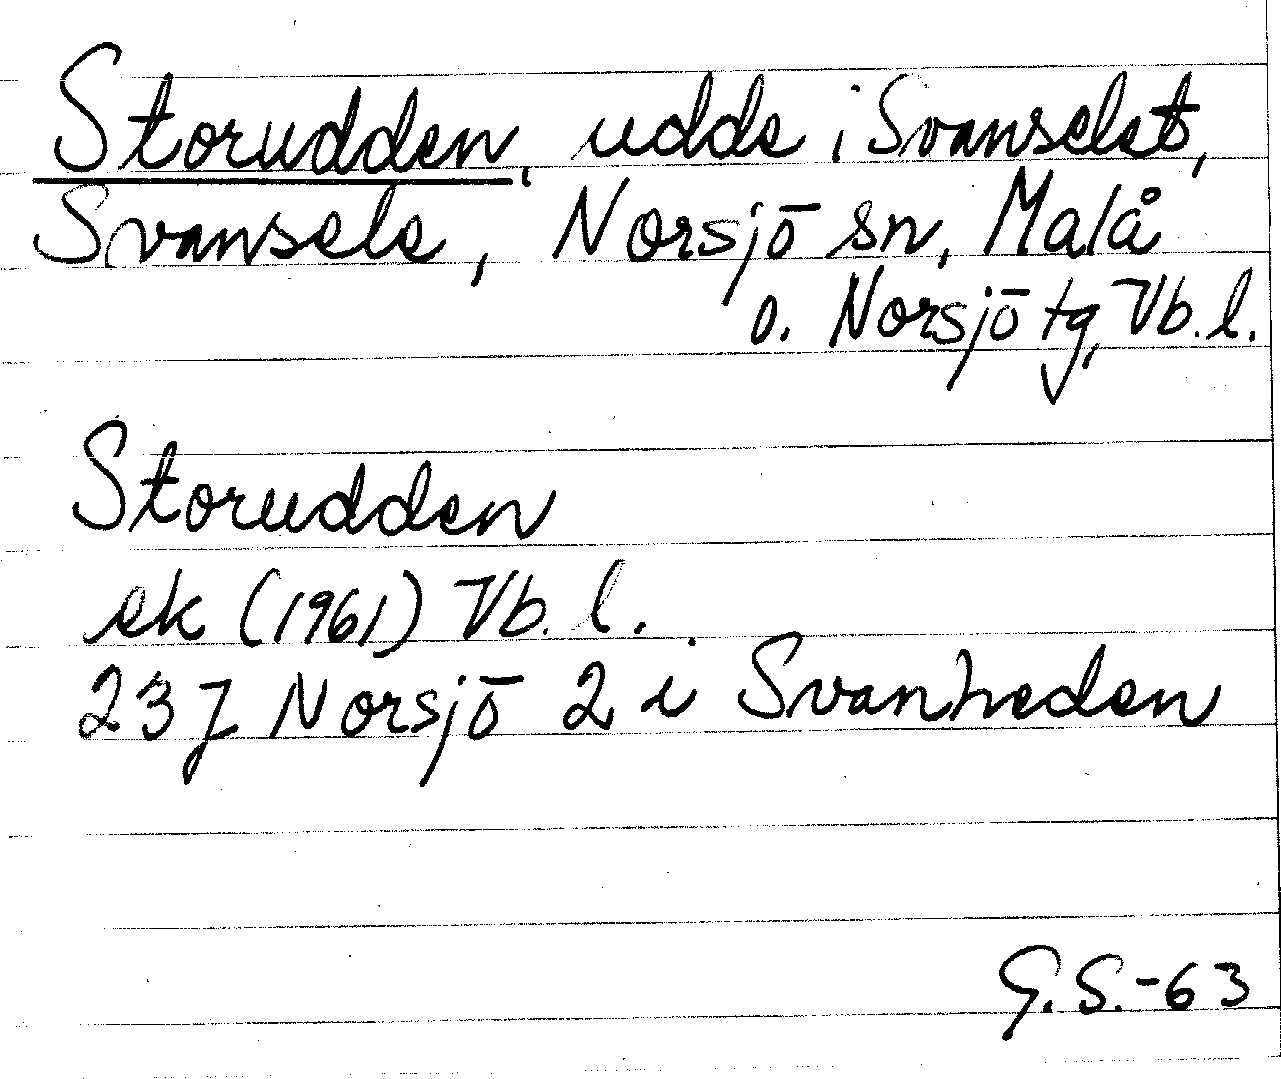 Storudden, udde i Svanselet,
Svansele, Norsjö sn, Malå
o. Norsjö tg, Vb. l.
Storudden
ek (1961) Vb. l.
23 J Norsjö 2 i Svanheden
G.S.-63